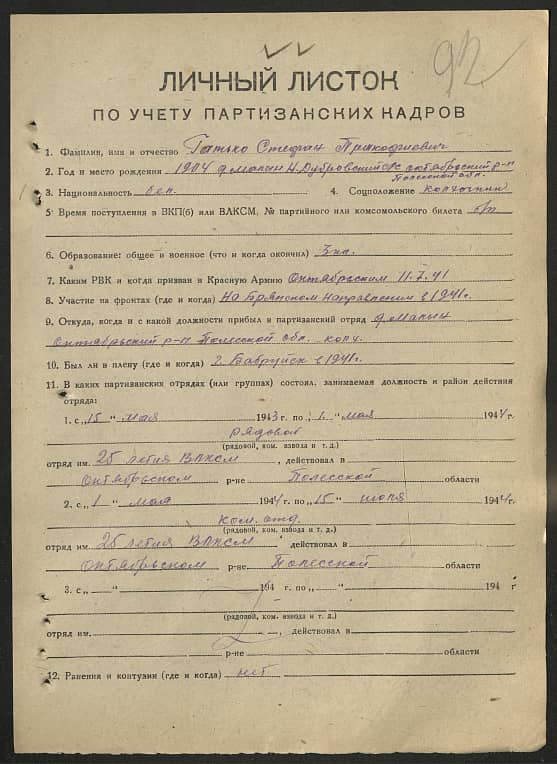 92
ЛИЧНЫЙ ЛИСТОК
ПО УЧЕТУ ПАРТИЗАНСКИХ КАДРОВ
1. Фамилия, имя и отчество Гатько Стефан
2. Год и место рождения 1904 д. Малын Н. Дубровский с/с октябрьский р-н
Полесской обл.
3. Национальность бел. 4. Соцположение колхозник
5. Время поступления в ВКП(б) или ВЛКСМ, № партийного или комсомольского билета б/п
6. Образование: общее и военное (что и когда окончил) 3 кл.
7. Каким РВК и когда призван в Красную Армию Октябрьским 11.7.41
8. Участие на фронтах (где и когда) На Брянском направлении в 1941г.
9. Откуда, когда и с какой должности прибыл в партизанский отряд д. Малын
Октябрьский р-н Полесской обл. колх.
10. Был ли в плену (где и когда) г. Бабруйск в 1941г.
11. В каких партизанских отрядах (или группах) состоял, занимаемая должность и район действия
отряда:
1. с „15" мая 1943 г. по „1" мая 1944 г.
рядовой
(рядовой, ком. взвода и т. д.)
отряд им. 25 летия ВЛКСМ, действовал в
Октябрьском р-не Полесской области
2. с „1" мая 1944 г. по „15" июня 1944 г.
ком. отд.
(рядовой, ком. взвода и т. д.)
отряд им. 25 летия ВЛКСМ действовал в
Октябрьском р-не Полесской области
3. с „ " 194 г. по „ " 194 г
(рядовой, ком. взвода и т. д.)
отряд им. , действовал в
р-не области
12. Ранения и контузии (где и когда) нет